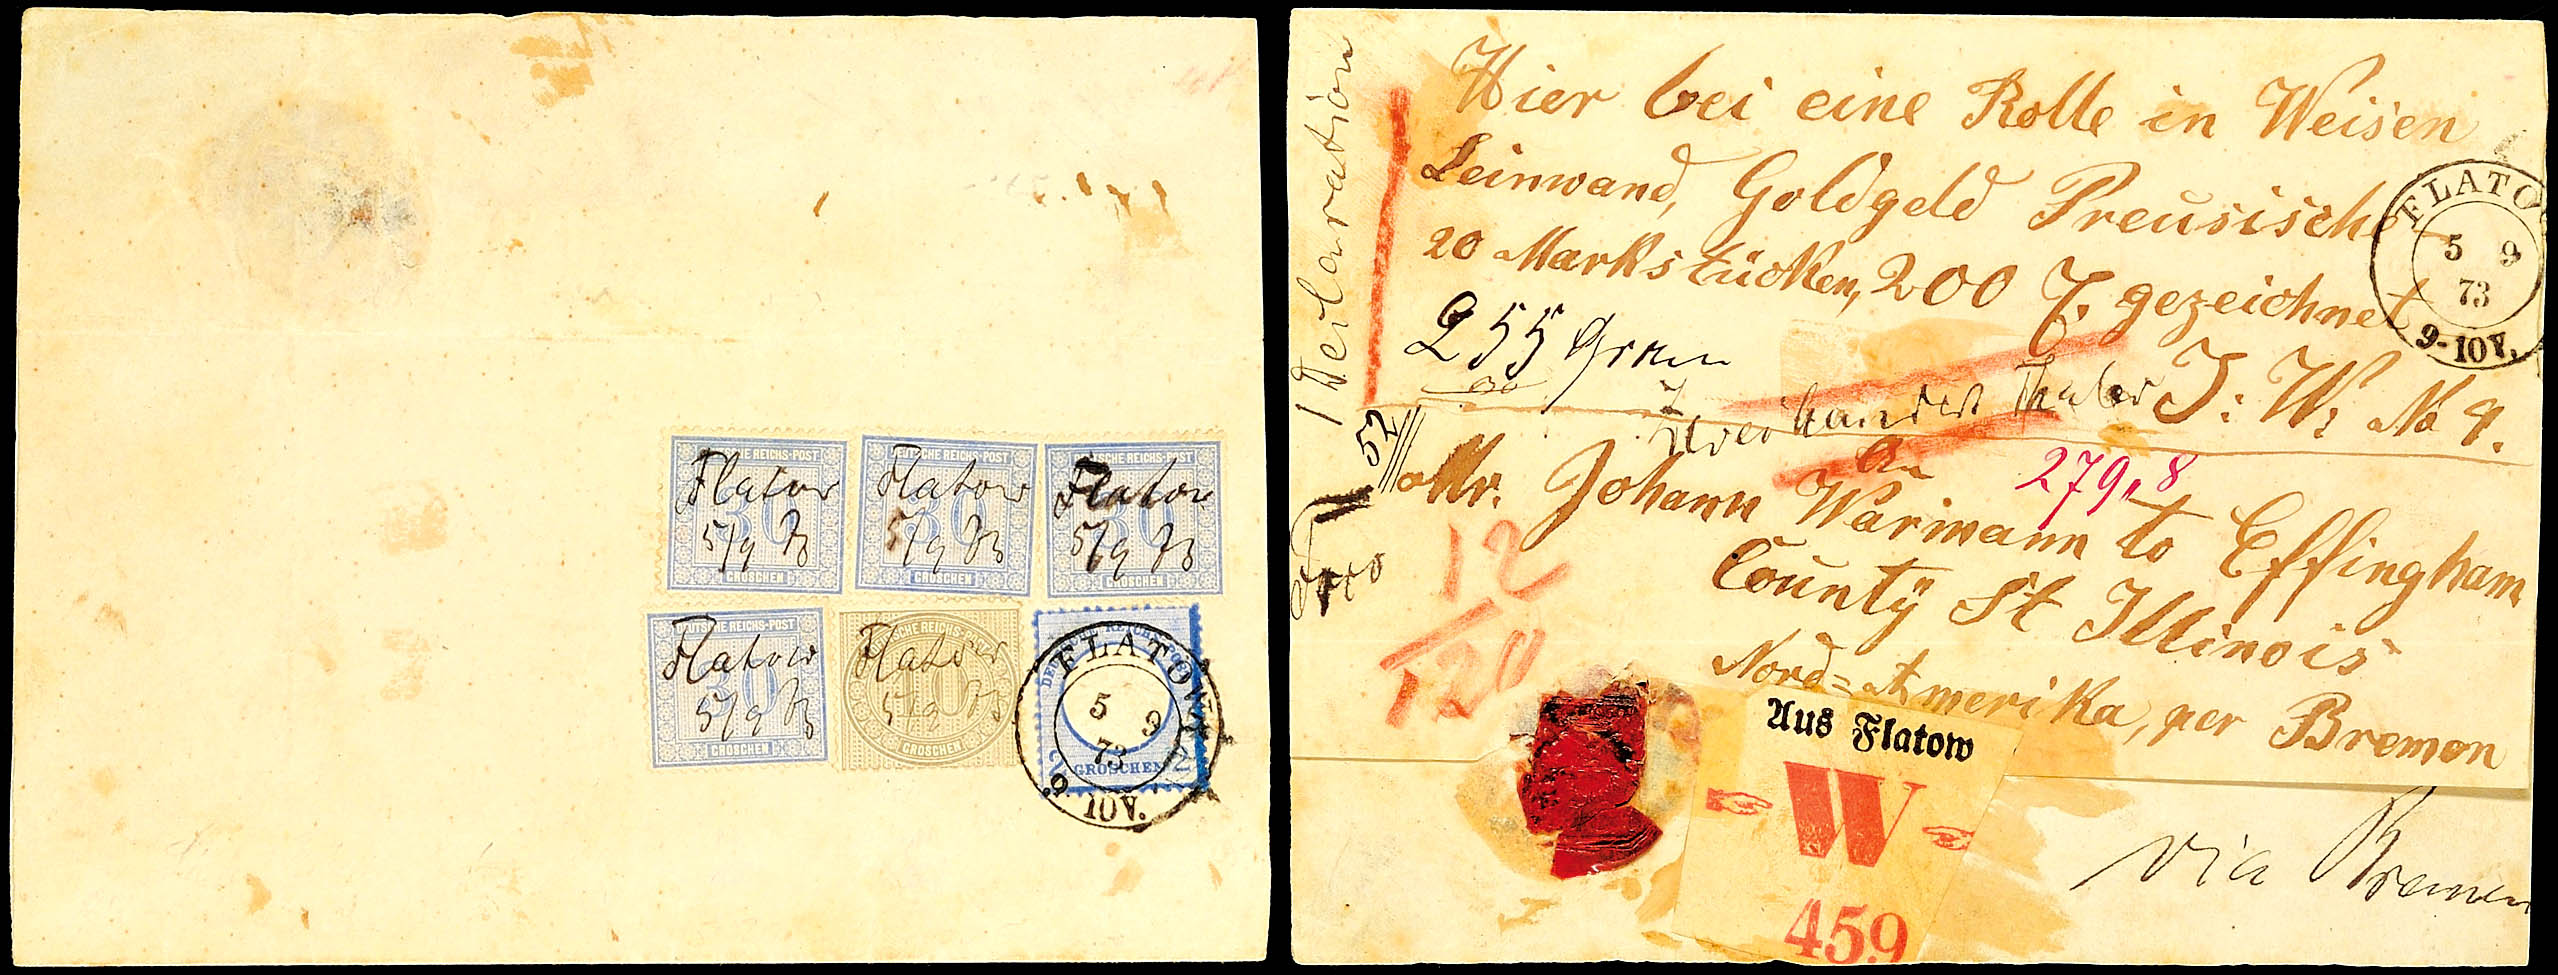 DEUTSCHE REICHS-POST
30
GROSCHEN
Flatow
5/9 73
DEUTSCHE REICHS-POST
30
GROSCHEN
Flatow
5/9 73
DEUTSCHE REICHS-POST
30
GROSCHEN
Flatow
5/9 73
DEUTSCHE REICHS-POST
30
GROSCHEN
Flatow
5/9 73
DEUTSCHE REICHS-POST
10
GROSCHEN
Flatow
5/9 73
GROSCHEN
FLATOW
5 9
73
9-10V.
1 Declaration
Hier bei eine Rolle in Weisen
Leinwand, Goldgeld Preusische
20 Markstücken, 200 gezeichnet
FLATOW
5 9
73
9-10V.
255
Zweihundert Thaler J: W: No 9.
52
An
279,,8
Mr. Johann Warmann to Effingham
County St Illinois
Nord=Amerika, per Bremen
12
120
Aus Flatow
W
459
via Bremen